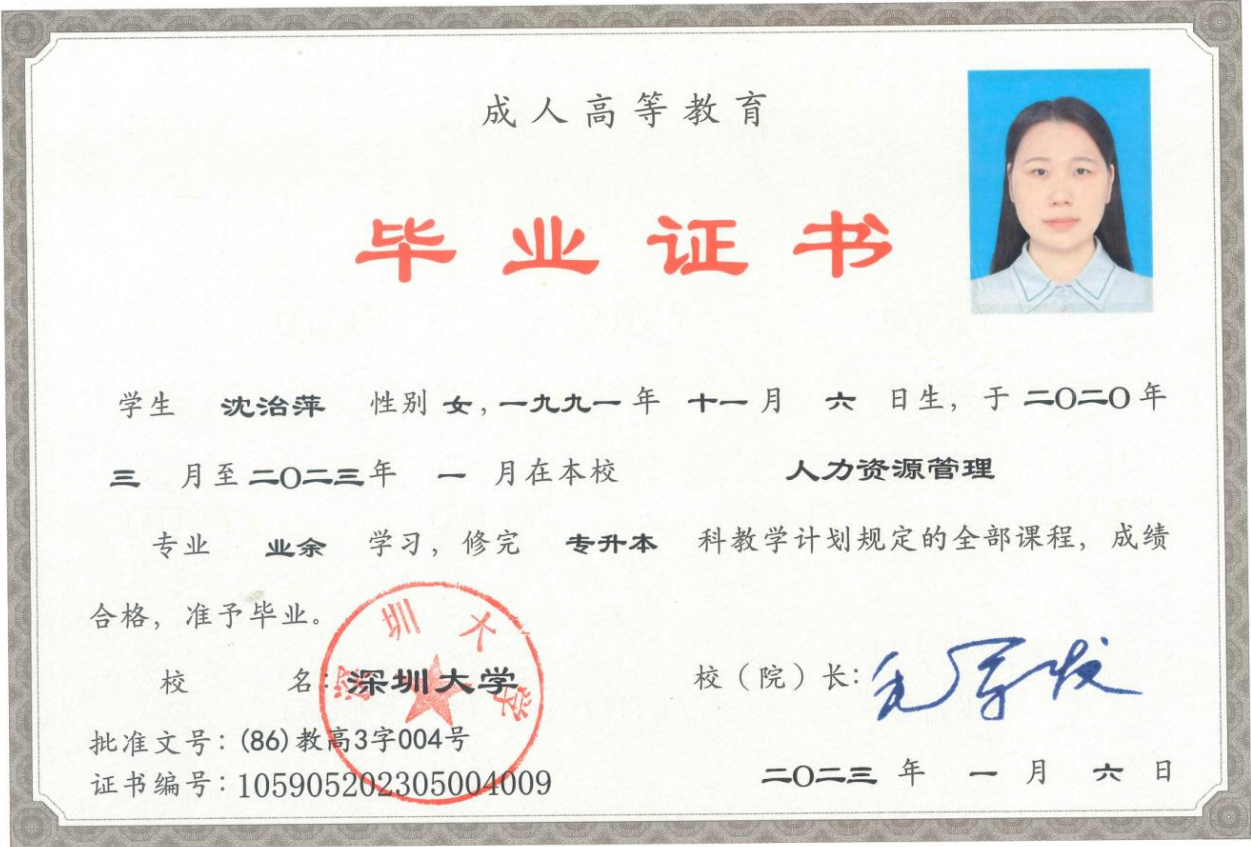 成人高等教育
毕业证书
学生 沈治萍 性别 女, 一九九一 年 十一 月 六 日生, 于 二〇二〇 年
三 月至 二〇二三 年 一 月在本校 人力资源管理
专业 业余 学习, 修完 专升本 科教学计划规定的全部课程, 成绩
合格, 准予毕业。
校 名: 深圳大学
深圳大学
校（院）长: 毛军发
批准文号: (86)教高3字004号
证书编号: 105905202305004009
二〇二三 年 一 月 六 日